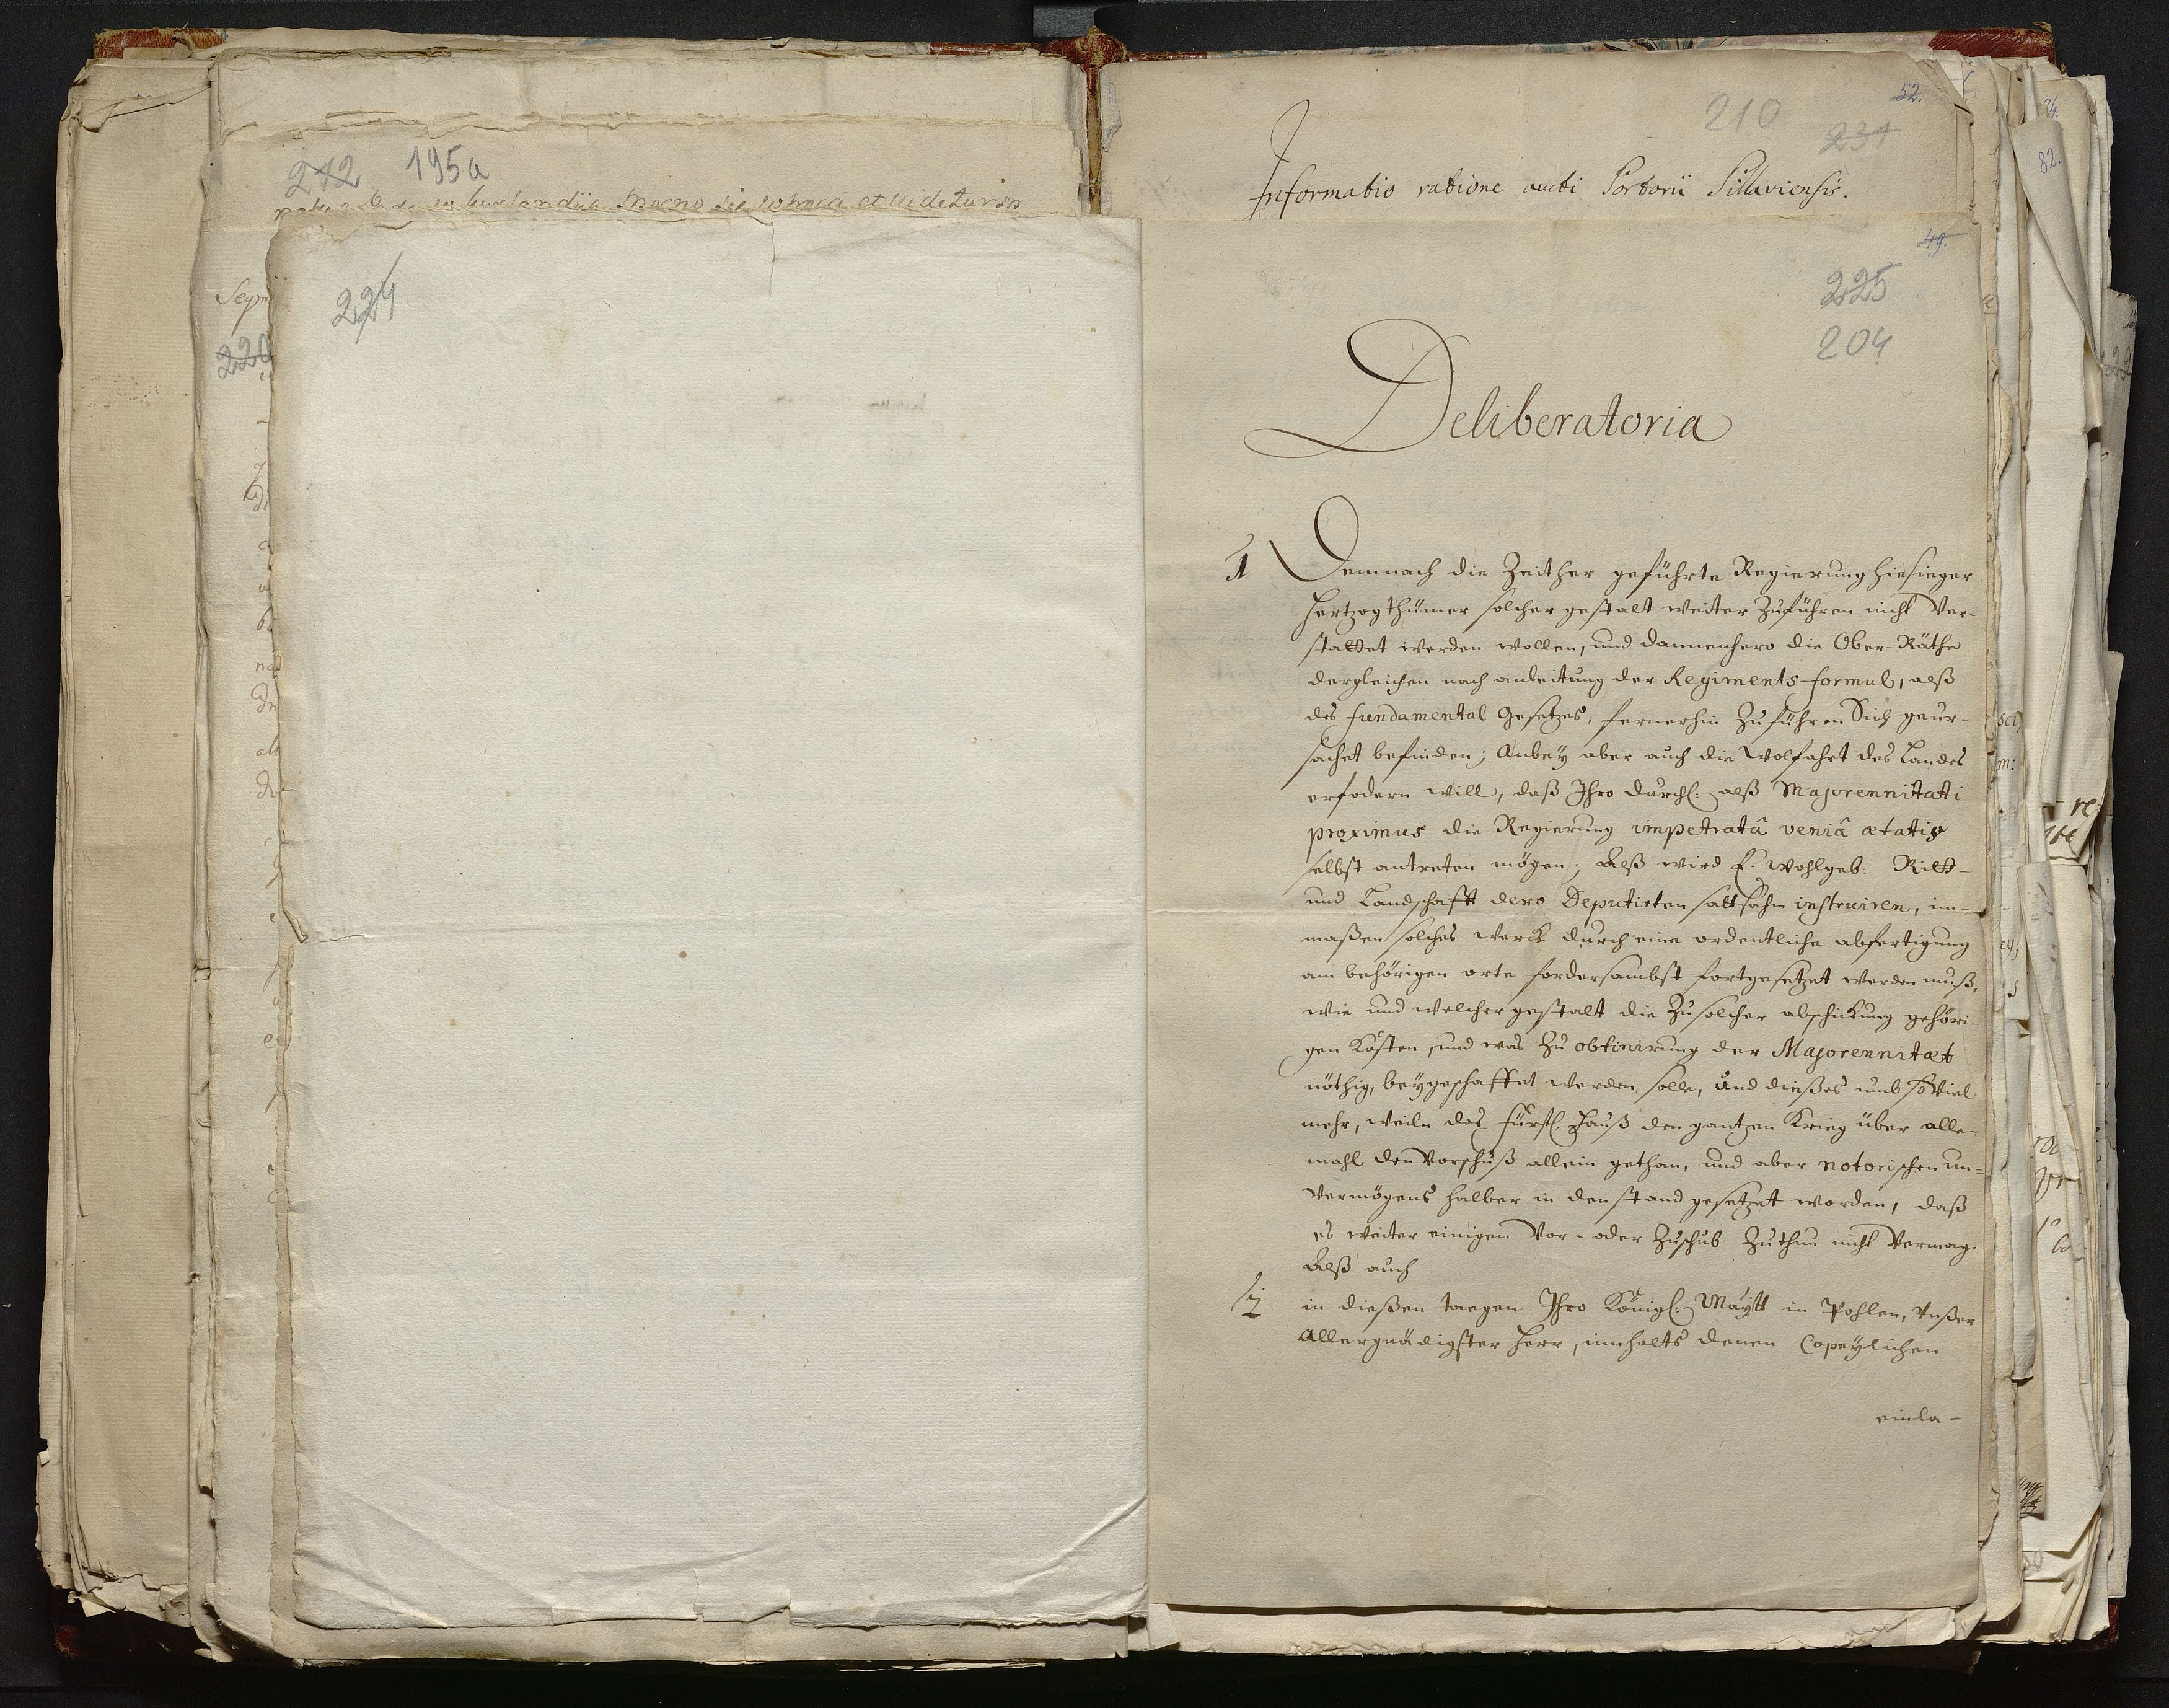 212 195a
224
220
52.
210
231
Informatio ratione aucti Portorii Pillaviensis.
49.
225
204
Deliberatoria
1 Demnach die Zeither geführte Regierung hiesieger
Hertzogthümer solcher gestalt weiter zuführen nicht ver-
stattet werden wollen, und dannenhero die Ober-Räthe
dergleichen nach anleitung der Regiments-formul, alß
des fundamental Gesetzes, fernerhin zuführen Sich geur-
sachet befinden; Anbey aber auch die Wolfahrt des Landes
erfodern will, daß Ihro Durchl: alß Majorennitati
proximus die Regierung impetratâ veniâ ætatis
selbst antreten mögen; Alß wird E. Wohlgeb: Ritt-
und Landschafft dero Deputirten sattsahm instruiren, im-
maßen solches Werck durch eine ordentliche abfertigung
am behörigen orte fordersambst fortgesetzet werden muß,
wie und welcher gestalt die zu solcher abschickung gehöri-
gen Kösten, und was zu obtinirung der Majorennitæt
nöthig, beygeschaffet werden solle, und dießes umb so viel
mehr, weiln das Fürstl. Hauß den gantzen Krieg über alle-
mahl den Vorschuß allein gethan, und aber notorischen un-
vermögens halber in den stand gesetzet worden, daß
es weiter einigen Vor- oder Zuschub zuthun nicht vermag.
Alß auch
ij in dießen taegen Ihro Königl: Maytt in Pohlen, Unßer
Allergnädigster Herr, innhalts denen Copeylichen
einla-
82.